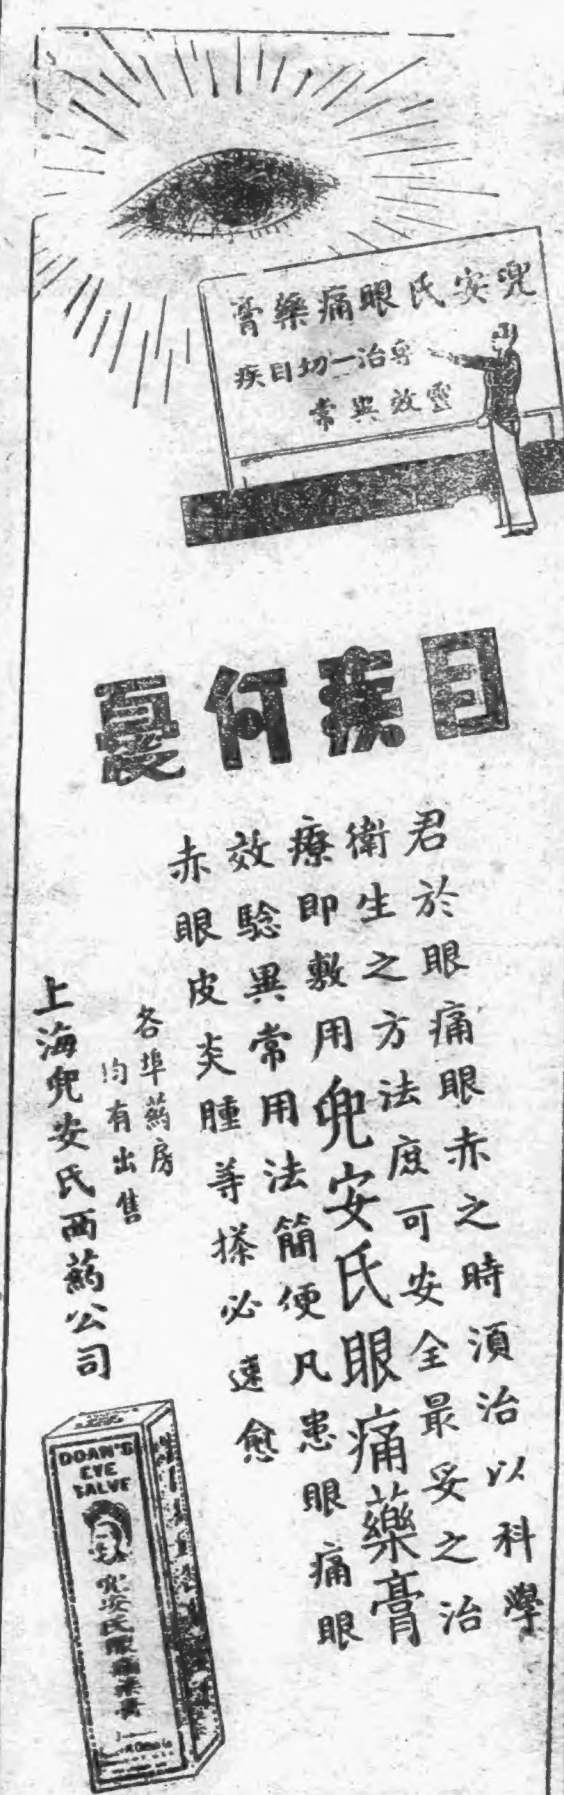 兜安氏眼痛藥膏
專治一切目疾
靈效異常
目疾何憂
君於眼痛眼赤之時須治以科學
衛生之方法庶可安全最妥之治
療即敷用兜安氏眼痛藥膏
效驗異常用法簡便凡患眼痛眼
赤眼皮炎腫等搽必速愈
各埠葯房
均有出售
上海兜安氏西葯公司
DOAN'S
EYE
SALVE
兜安氏眼痛藥膏